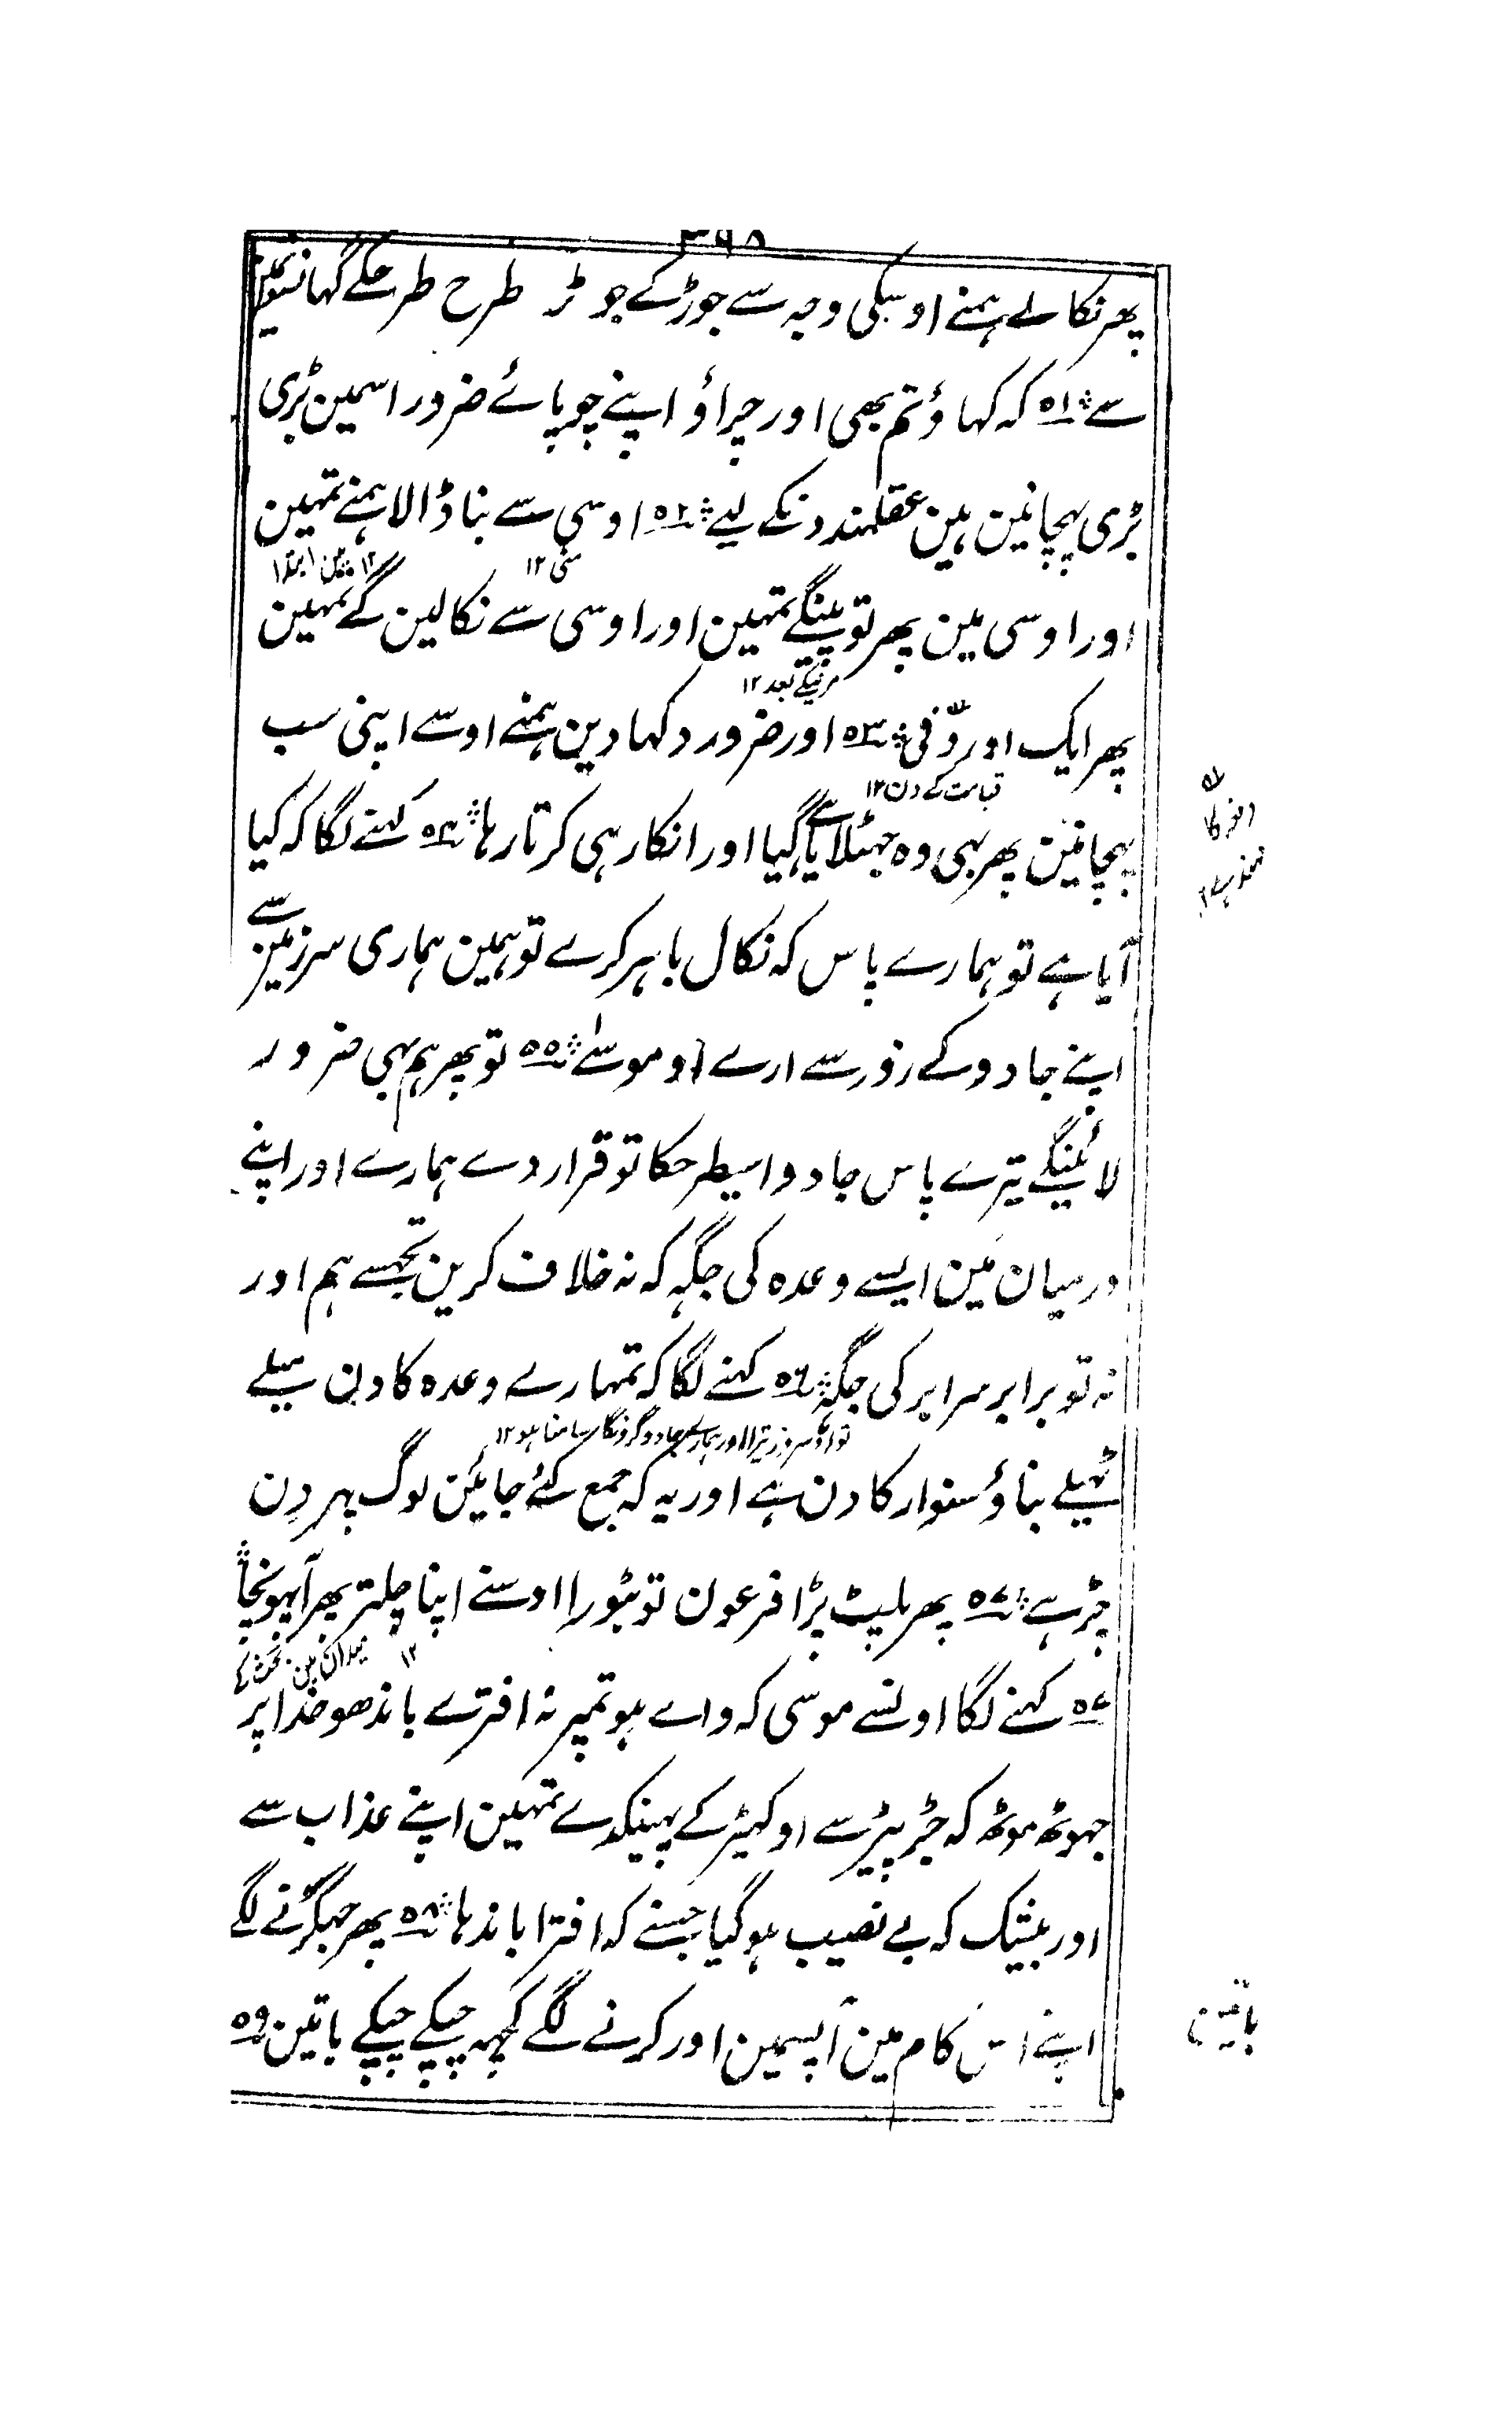 ۳۹۸
پھر نکالے ہمنے اوسکی وجہ سے جوڑکے جوڑ طرح طرحکے گہانسونمین
سے ۵۱ کہ کہاؤ تم بھی اور چراؤ اپنے چوپائے ضرور اسمین بڑی
بڑی پہچانین ہین عقلمندونکے لیے ۵۲ اوسی سے بنا ڈالا ہمنے تمہین
اور اوسی مین پھر توپینگے تمہین اور اوسی سے نکالین گے تمہین
مرنیکے بعد ۱۲
پھر ایک اور دفی ۵۳ اور ضرور دکہا دین ہمنے اوسے اپنی سب
قیامت کے دن ۱۲
پہچانین پھر بہی وہ جہٹلاتا ہی گیا اور انکار ہی کرتا رہا ۵۴ کہنے لگا کہ کیا
آیا ہے تو ہمارے پاس کہ نکال باہر کرے تو ہمین ہماری سرزمین سے
اپنے جادو کے زور سے ارے او موسےٰ ۵۵ تو پھر ہم بہی ضرور
لائینگے تیرے پاس جادو اسیطرحکا تو قرار دے ہمارے اور اپنے
درمیان مین ایسے وعدہ کی جگہ کہ نہ خلاف کرین تجہسے ہم اور
نہ تو برابر سرابر کی جگہ ۵۶ کہنے لگا کہ تمہارے وعدہ کا دن میلے
تو اوس روز تیرا اور ہمارے جادوگرونکا سامنا ہو ۱۲
ٹہیلے بناؤ سنوار کا دن ہے اور یہ کہ جمع کئے جائین لوگ پہر دن
چڑہے ۵۷ پھر پلٹ پڑا فرعون تو بٹورا اوسنے اپنا چلتر پھر آپہونچا
میدان مین بحث کے ۱۲
۵۷ کہنے لگا اونسے موسی کہ واے ہو تمپر نہ افترے باندھو خدا پر
جہوٹھ موٹھ کہ جڑ پیڑ سے اوکہیڑ کے پہینکدے تمہین اپنے عذاب سے
اور بیشک کہ بے نصیب ہو گیا جسنے کہ افترا باندہا ۵۸ پھر جہگڑنے لگے
اپنے اس کام مین آپسمین اور کرنے لگے کچہہ چپکے چپکے باتین ۵۹
باتین